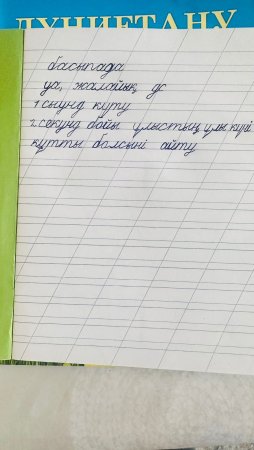 ДҮНИЕТАНУ
басыпада
уа, жалайық, де
1 сыунд күту
2. секунд бойы ұлыстың ұлы күні
құтты болсыні айту